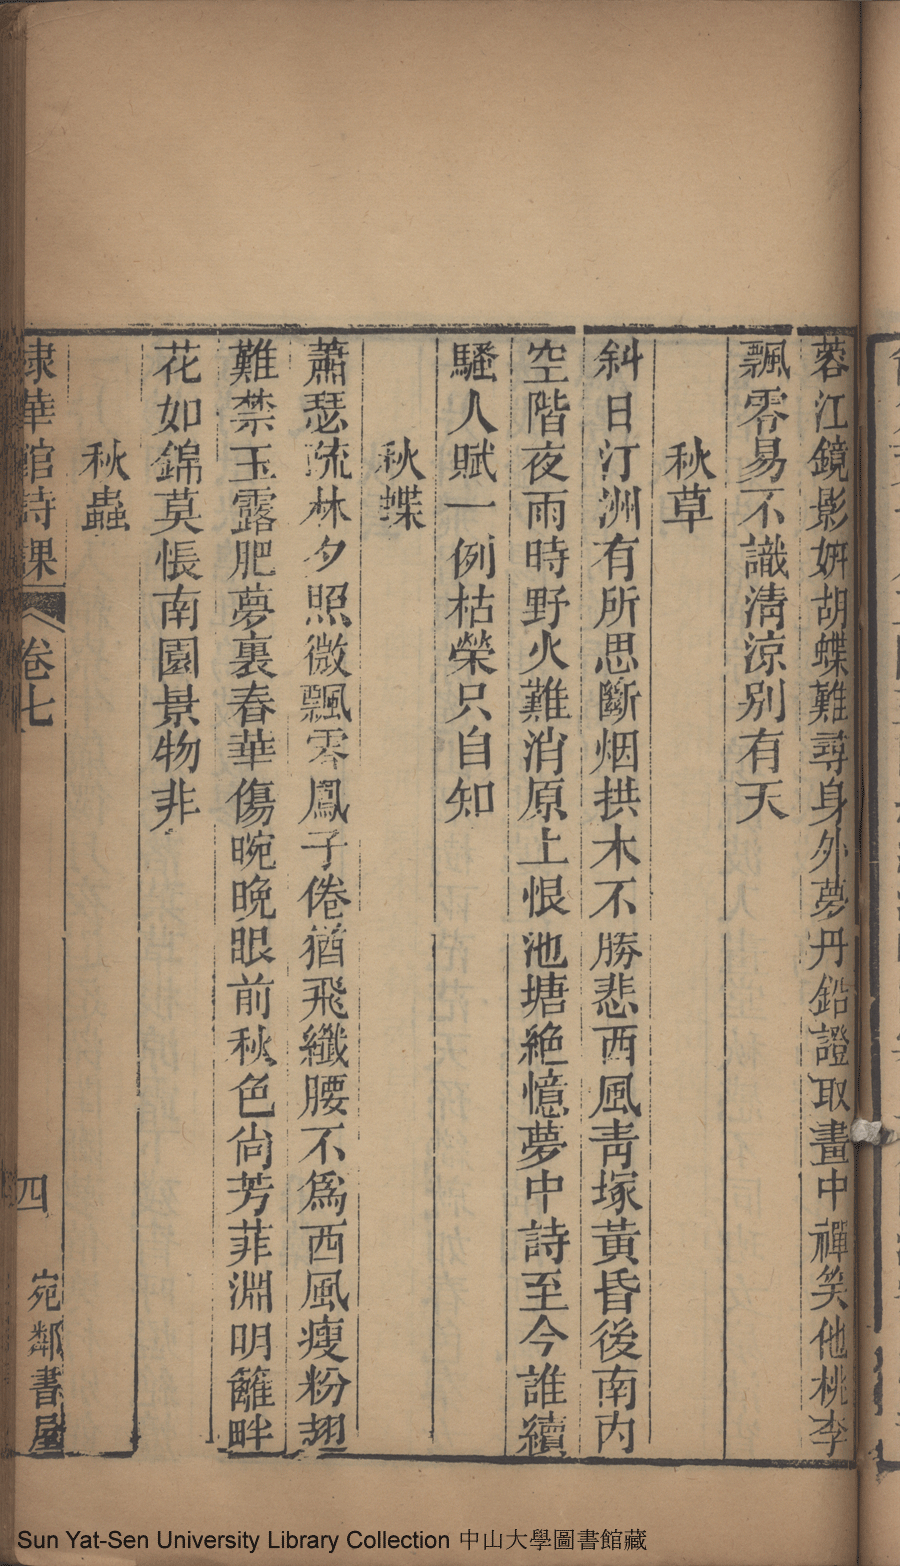 蓉江鏡影妍胡蝶難尋身外夢丹鉛證取畫中禪笑他桃李
飄零易不識淸涼別有天
秋草
斜日汀洲有所思斷烟拱木不勝悲西風靑塚黃昏後南內
空階夜雨時野火難消原上恨池塘絕憶夢中詩至今誰續
騷人賦一例枯榮只自知
秋蝶
蕭瑟疏林夕照微飄零鳳子倦猶飛纖腰不爲西風瘦粉翅
難禁玉露肥夢裏春華傷晼晚眼前秋色尙芳菲淵明籬畔
花如錦莫悵南園景物非
秋蟲
棣華館詩課
卷七
四
宛鄰書屋
Sun Yat-Sen University Library Collection 中山大學圖書館藏